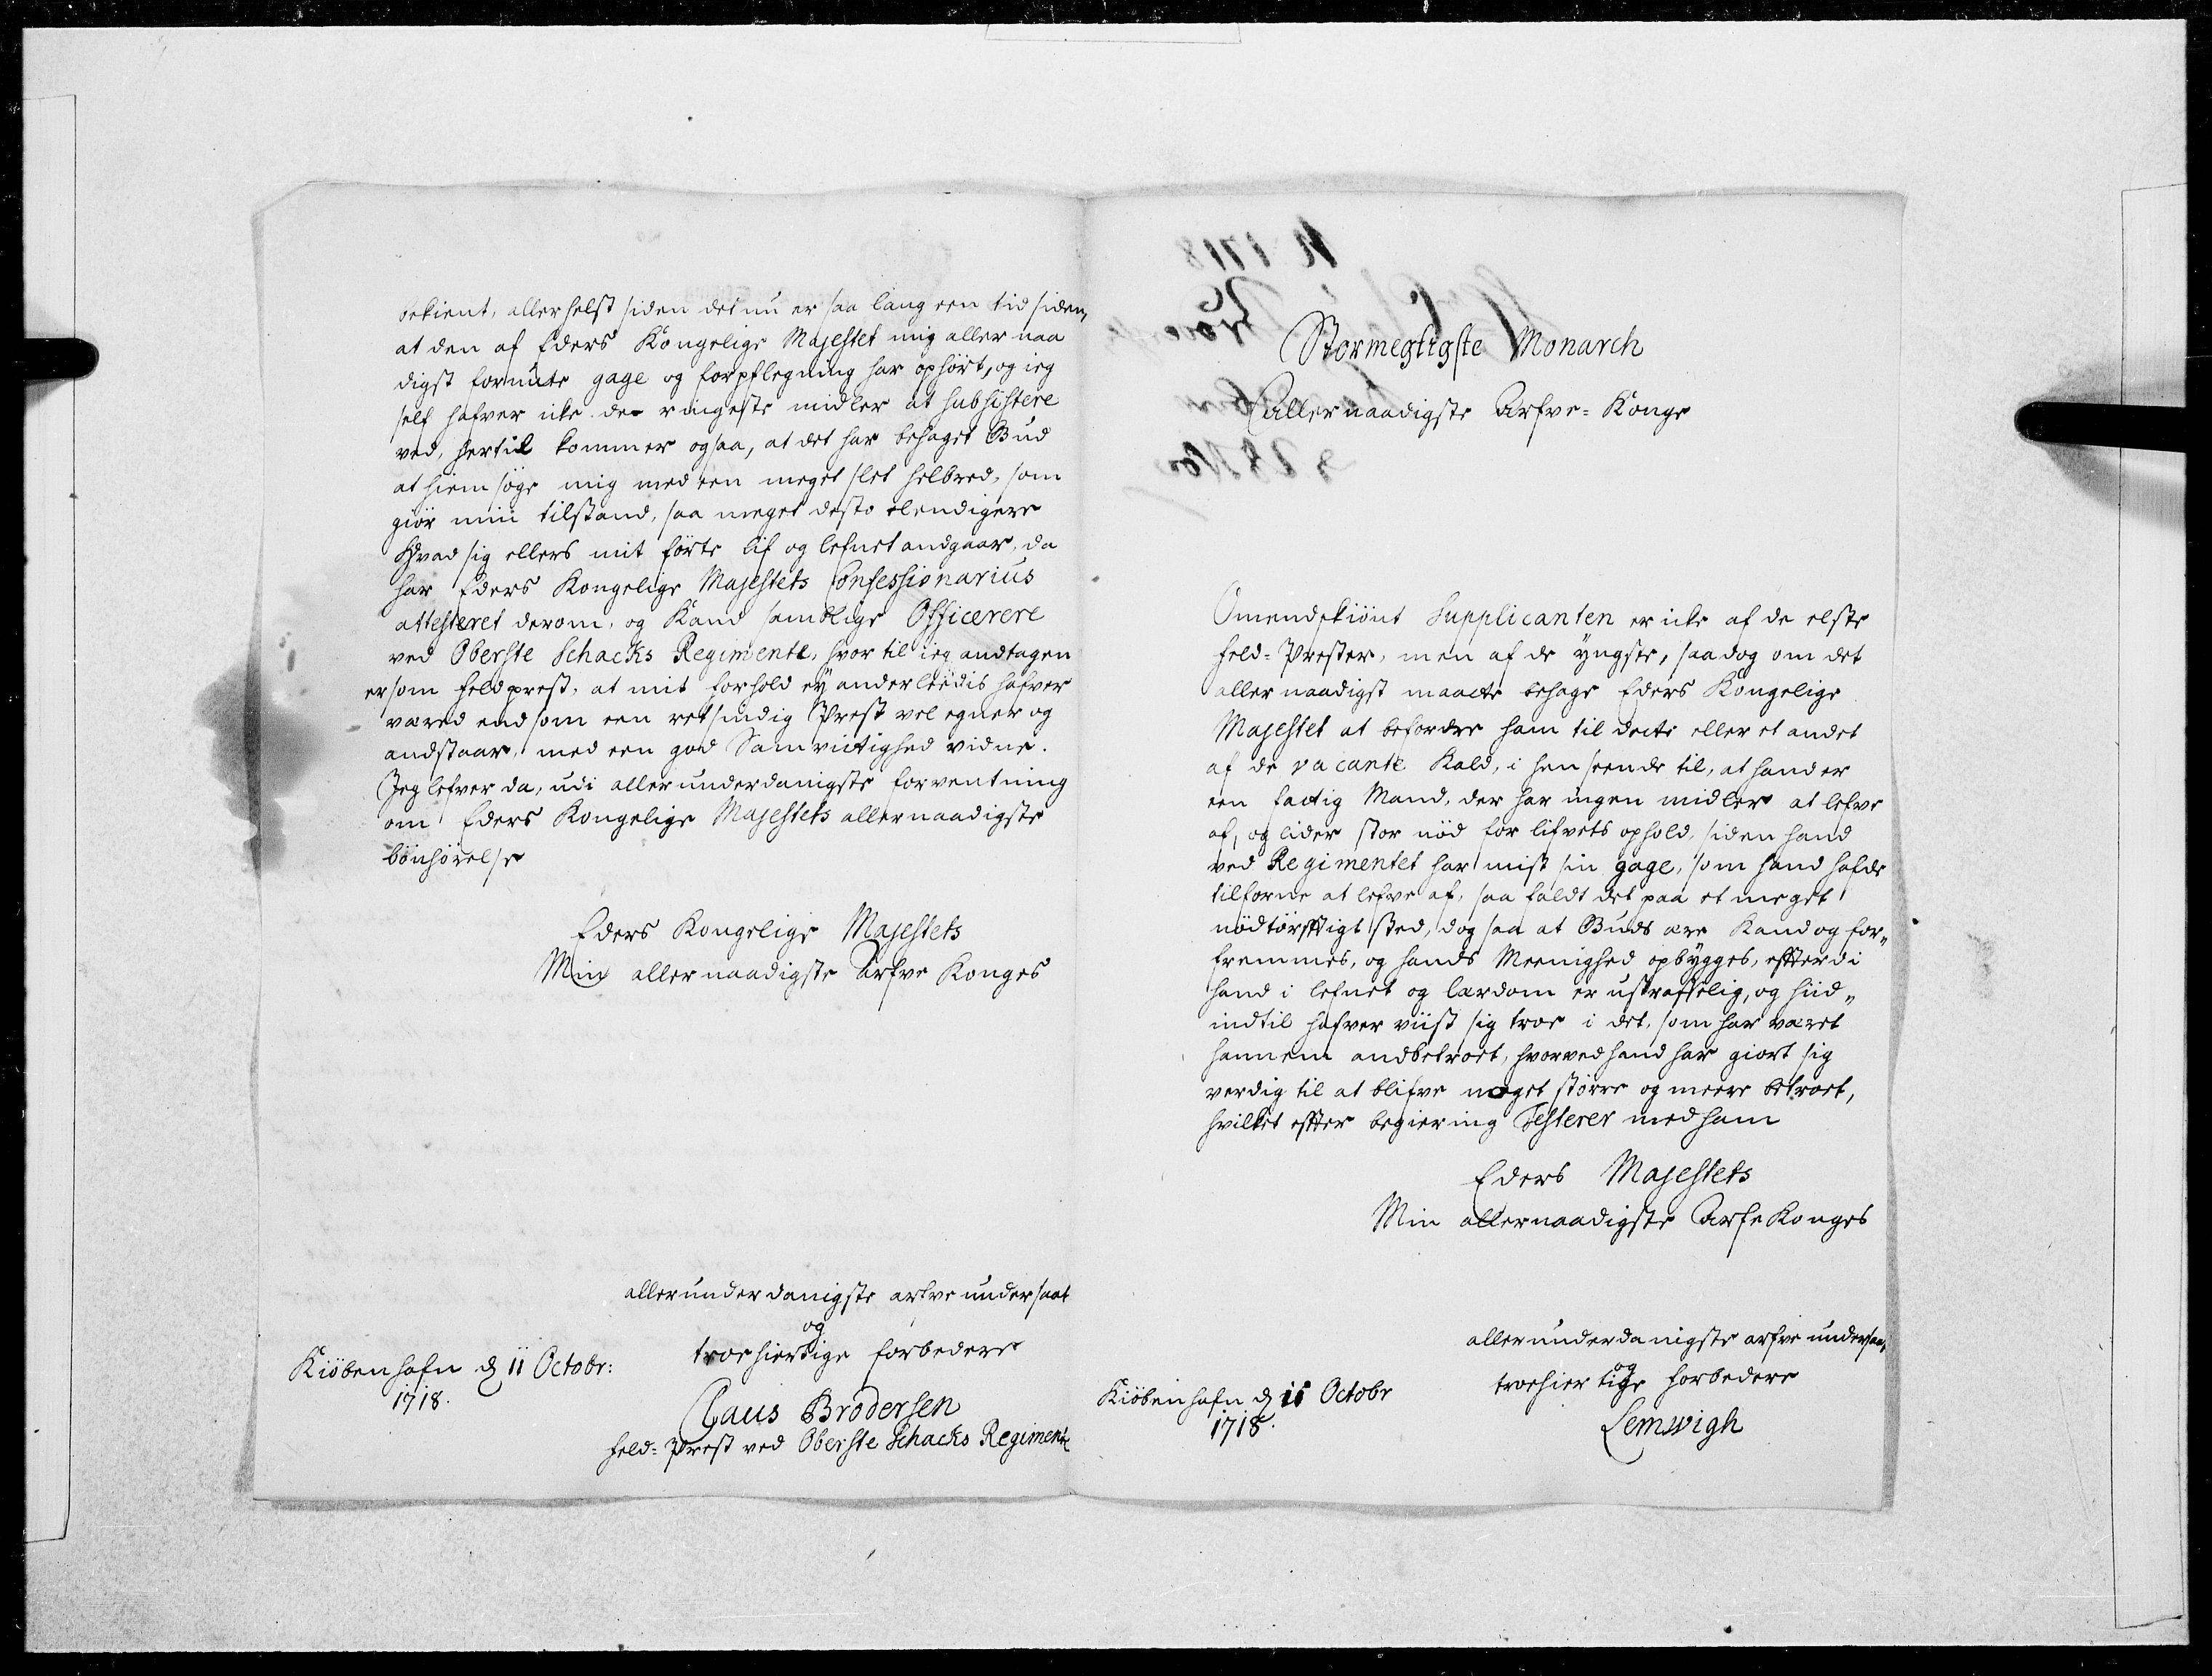 bekient, allerhelst siden det nu er saa lang een tid siden,
at den af Eders Kongelige Majestet mig aller naa
digst formente gage og forpflegning har ophört, og ieg
self hafver icke de ringeste midler at subsistere
ved, hertil kommer ogsaa, at det har behaget Gud
at hiemsöge mig med een meget slet helbred, som
giör min tilstand, saa meget desto elendigere
Hvad sig ellers mit förte lif og lefnet andgaar, da
har Eders Kongelige Majestets Confessionarius
attesteret derom, og Kand samtlige Officerere
ved Oberste Schacks Regimente, hvor til ieg andtagen
er som feldprest, at mit forhold ey anderleedis hafver
vaeret end som een retsindig Prest vel egner og
andstaar, med een god Samvittighed vidne.
Jeg lefver da, udi allerunderdanigste forventning
om Eders Kongelige Majestets allernaadigste
bönhörelse
Eders Kongelige Majestets
Min aller naadigste Arfve Konges
allerunderdanigste arfve undersaat
og
troehiertige forbedere
Kiöbenhafn d 11 Octobr:
1718.
Claus Brodersen
feld-Prest ved Oberste Schacks Regiment
Stormegtigste Monarch
Aller naadigste Arfve-Konge
Omendskiönt Supplicanten er icke af de elste
feld-Prester, men af de yngste, saa dog om det
aller naadigst maatte behage Eders Kongelige
Majestet at befordre ham til dette eller et andet
af de vacante Kald, i henseende til, at hand er
een fattig Mand, der har ingen midler at lefve
af, og lider stor nöd for lifvets ophold, siden hand
ved Regimentet har mist sin gage, som hand hafde
tilforne at lefve af, saa faldt det paa et meget
nödtörfftigt sted, dog saa at Guds aere Kand og for„
fremmes, og hands Meenighed opbygges, effterdi
hand i lefnet og lærdom er ustraffelig, og hid„
indtil hafver viist sig troe i det, som har været
hannem andbetroet, hvorved hand har giort sig
verdig til at blifve noget större og meere betroet,
hvilket effter begiering Testerer med ham
Eders Majestets
Min allernaadigste Arfve Konges
allerunderdanigste arfve undersaa,
og
troehiertige forbedere
Kiöbenhafn d 11 Octobr
1718.
Lemwigh